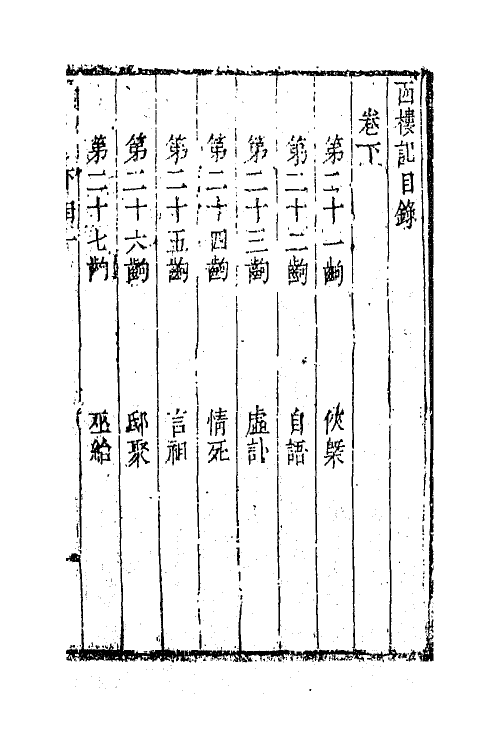 西樓記目錄
卷下
第二十一齣 俠槩
第二十二齣 自語
第二十三齣 虛訃
第二十四齣 情死
第二十五齣 言祖
第二十六齣 邸聚
第二十七齣 巫紿